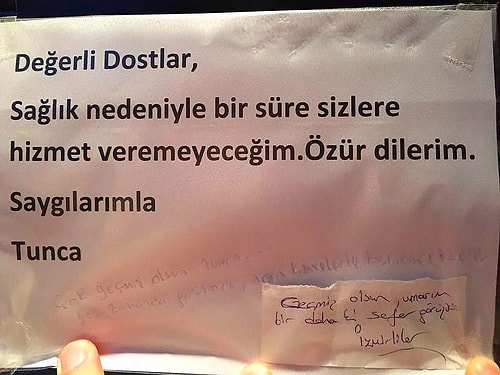 Değerli Dostlar,
Sağlık nedeniyle bir süre sizlere
hizmet veremeyeceğim.Özür dilerim.
Saygılarımla
Tunca
geçmiş olsun Tunca
Geçmiş olsun, umarım
bir daha ki sefer görüşürüz
İzmirliler